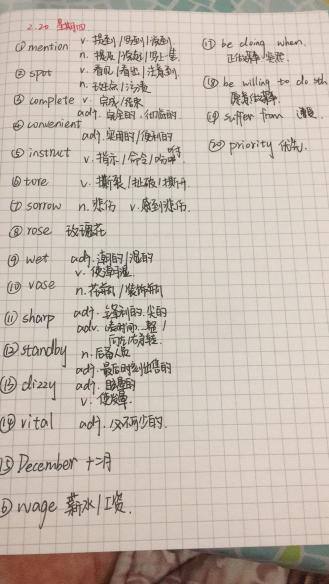 2.20 星期四
① mention v. 提到/写到/说到
n. 提及/说起/写上一笔
② spot v. 看见/看出/注意到
n. 斑点/污渍
③ complete v. 完成/结束
adj. 完全的、彻底的
④ convenient adj. 实用的/便利的
⑤ instruct v. 指示/命令/吩咐
⑥ tore v. 撕裂/扯破/撕开
⑦ sorrow n. 悲伤 v. 感到悲伤.
⑧ rose 玫瑰花
⑨ wet adj. 潮的/湿的
v. 使潮湿
⑩ vase n. 花瓶/装饰瓶
⑪ sharp adj. 锋利的.尖的
adv.
⑫ standby n. 后备人员
adj. 最后时刻出售的
⑬ dizzy adj. 眩晕的
v. 使发晕
⑭ vital adj. 必不可少的.
⑮ December 十二月
⑯ wage 薪水/工资.
⑰ be doing when.
正在做某事.突然
⑱ be willing to do sth
愿意做某事.
⑲ suffer from 遭受
⑳ priority 优先.